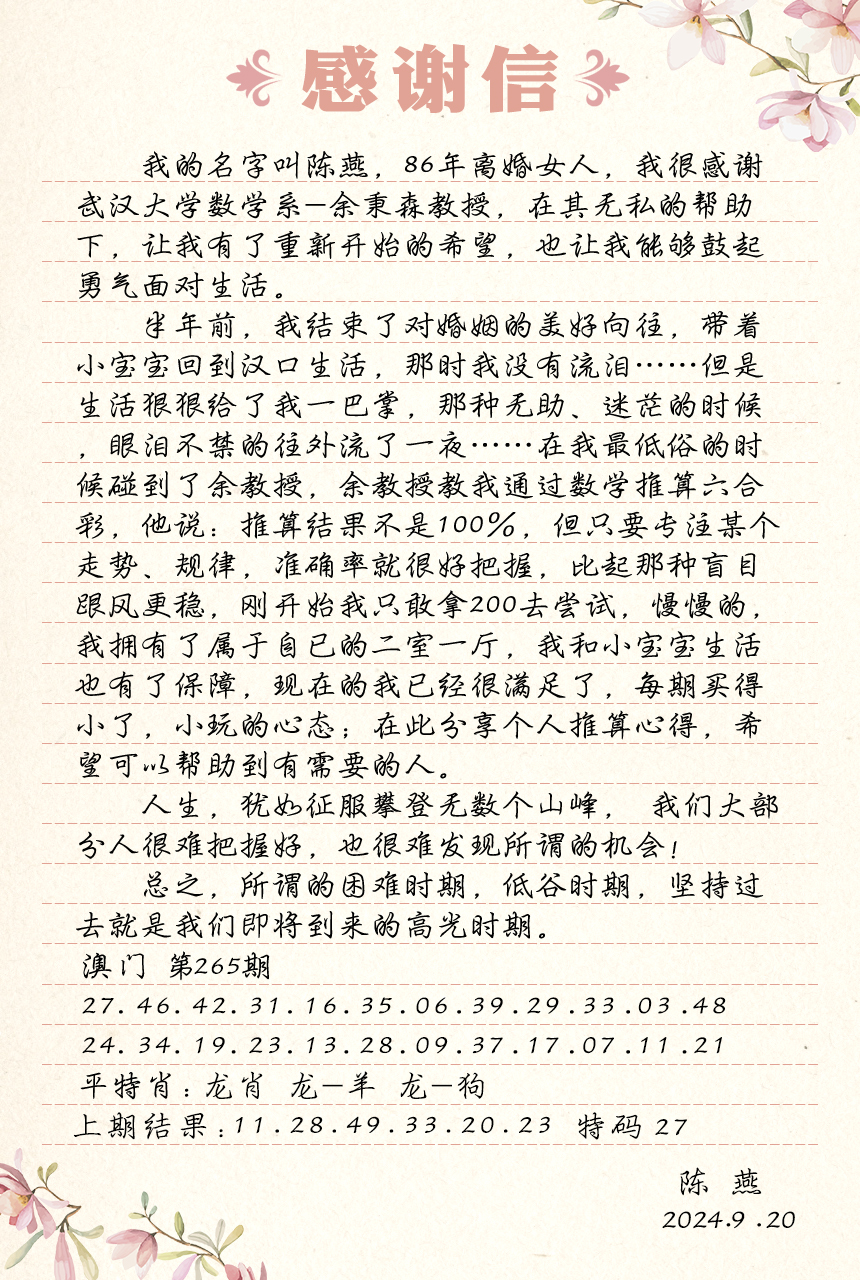 感谢信
我的名字叫陈燕，86年离婚女人，我很感谢
武汉大学数学系—余秉森教授，在其无私的帮助
下，让我有了重新开始的希望，也让我能够鼓起
勇气面对生活。
半年前，我结束了对婚姻的美好向往，带着
小宝宝回到汉口生活，那时我没有流泪……但是
生活狠狠给了我一巴掌，那种无助、迷茫的时候
，眼泪不禁的往外流了一夜……在我最低俗的时
候碰到了余教授，余教授教我通过数学推算六合
彩，他说：推算结果不是100%，但只要专注某个
走势、规律，准确率就很好把握，比起那种盲目
跟风更稳，刚开始我只敢拿200去尝试，慢慢的，
我拥有了属于自已的二室一厅，我和小宝宝生活
也有了保障，现在的我已经很满足了，每期买得
小了，小玩的心态；在此分享个人推算心得，希
望可以帮助到有需要的人。
人生，犹如征服攀登无数个山峰， 我们大部
分人很难把握好，也很难发现所谓的机会！
总之，所谓的困难时期，低谷时期，坚持过
去就是我们即将到来的高光时期。
澳门 第265期
27.46.42.31.16.35.06.39.29.33.03.48
24.34.19.23.13.28.09.37.17.07.11.21
平特肖：龙肖 龙—羊 龙—狗
上期结果：11.28.49.33.20.23 特码 27
陈 燕
2024.9.20